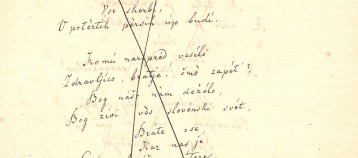 Vse skerbi,
V potèrtih pèrsih up budí.
Komú narpred veselo
Zdravljico, bratje! čmò zapét'!
Bog našo nam deželo,
Bog živi ves slovénski svet,
Brate vse
Kar nas je